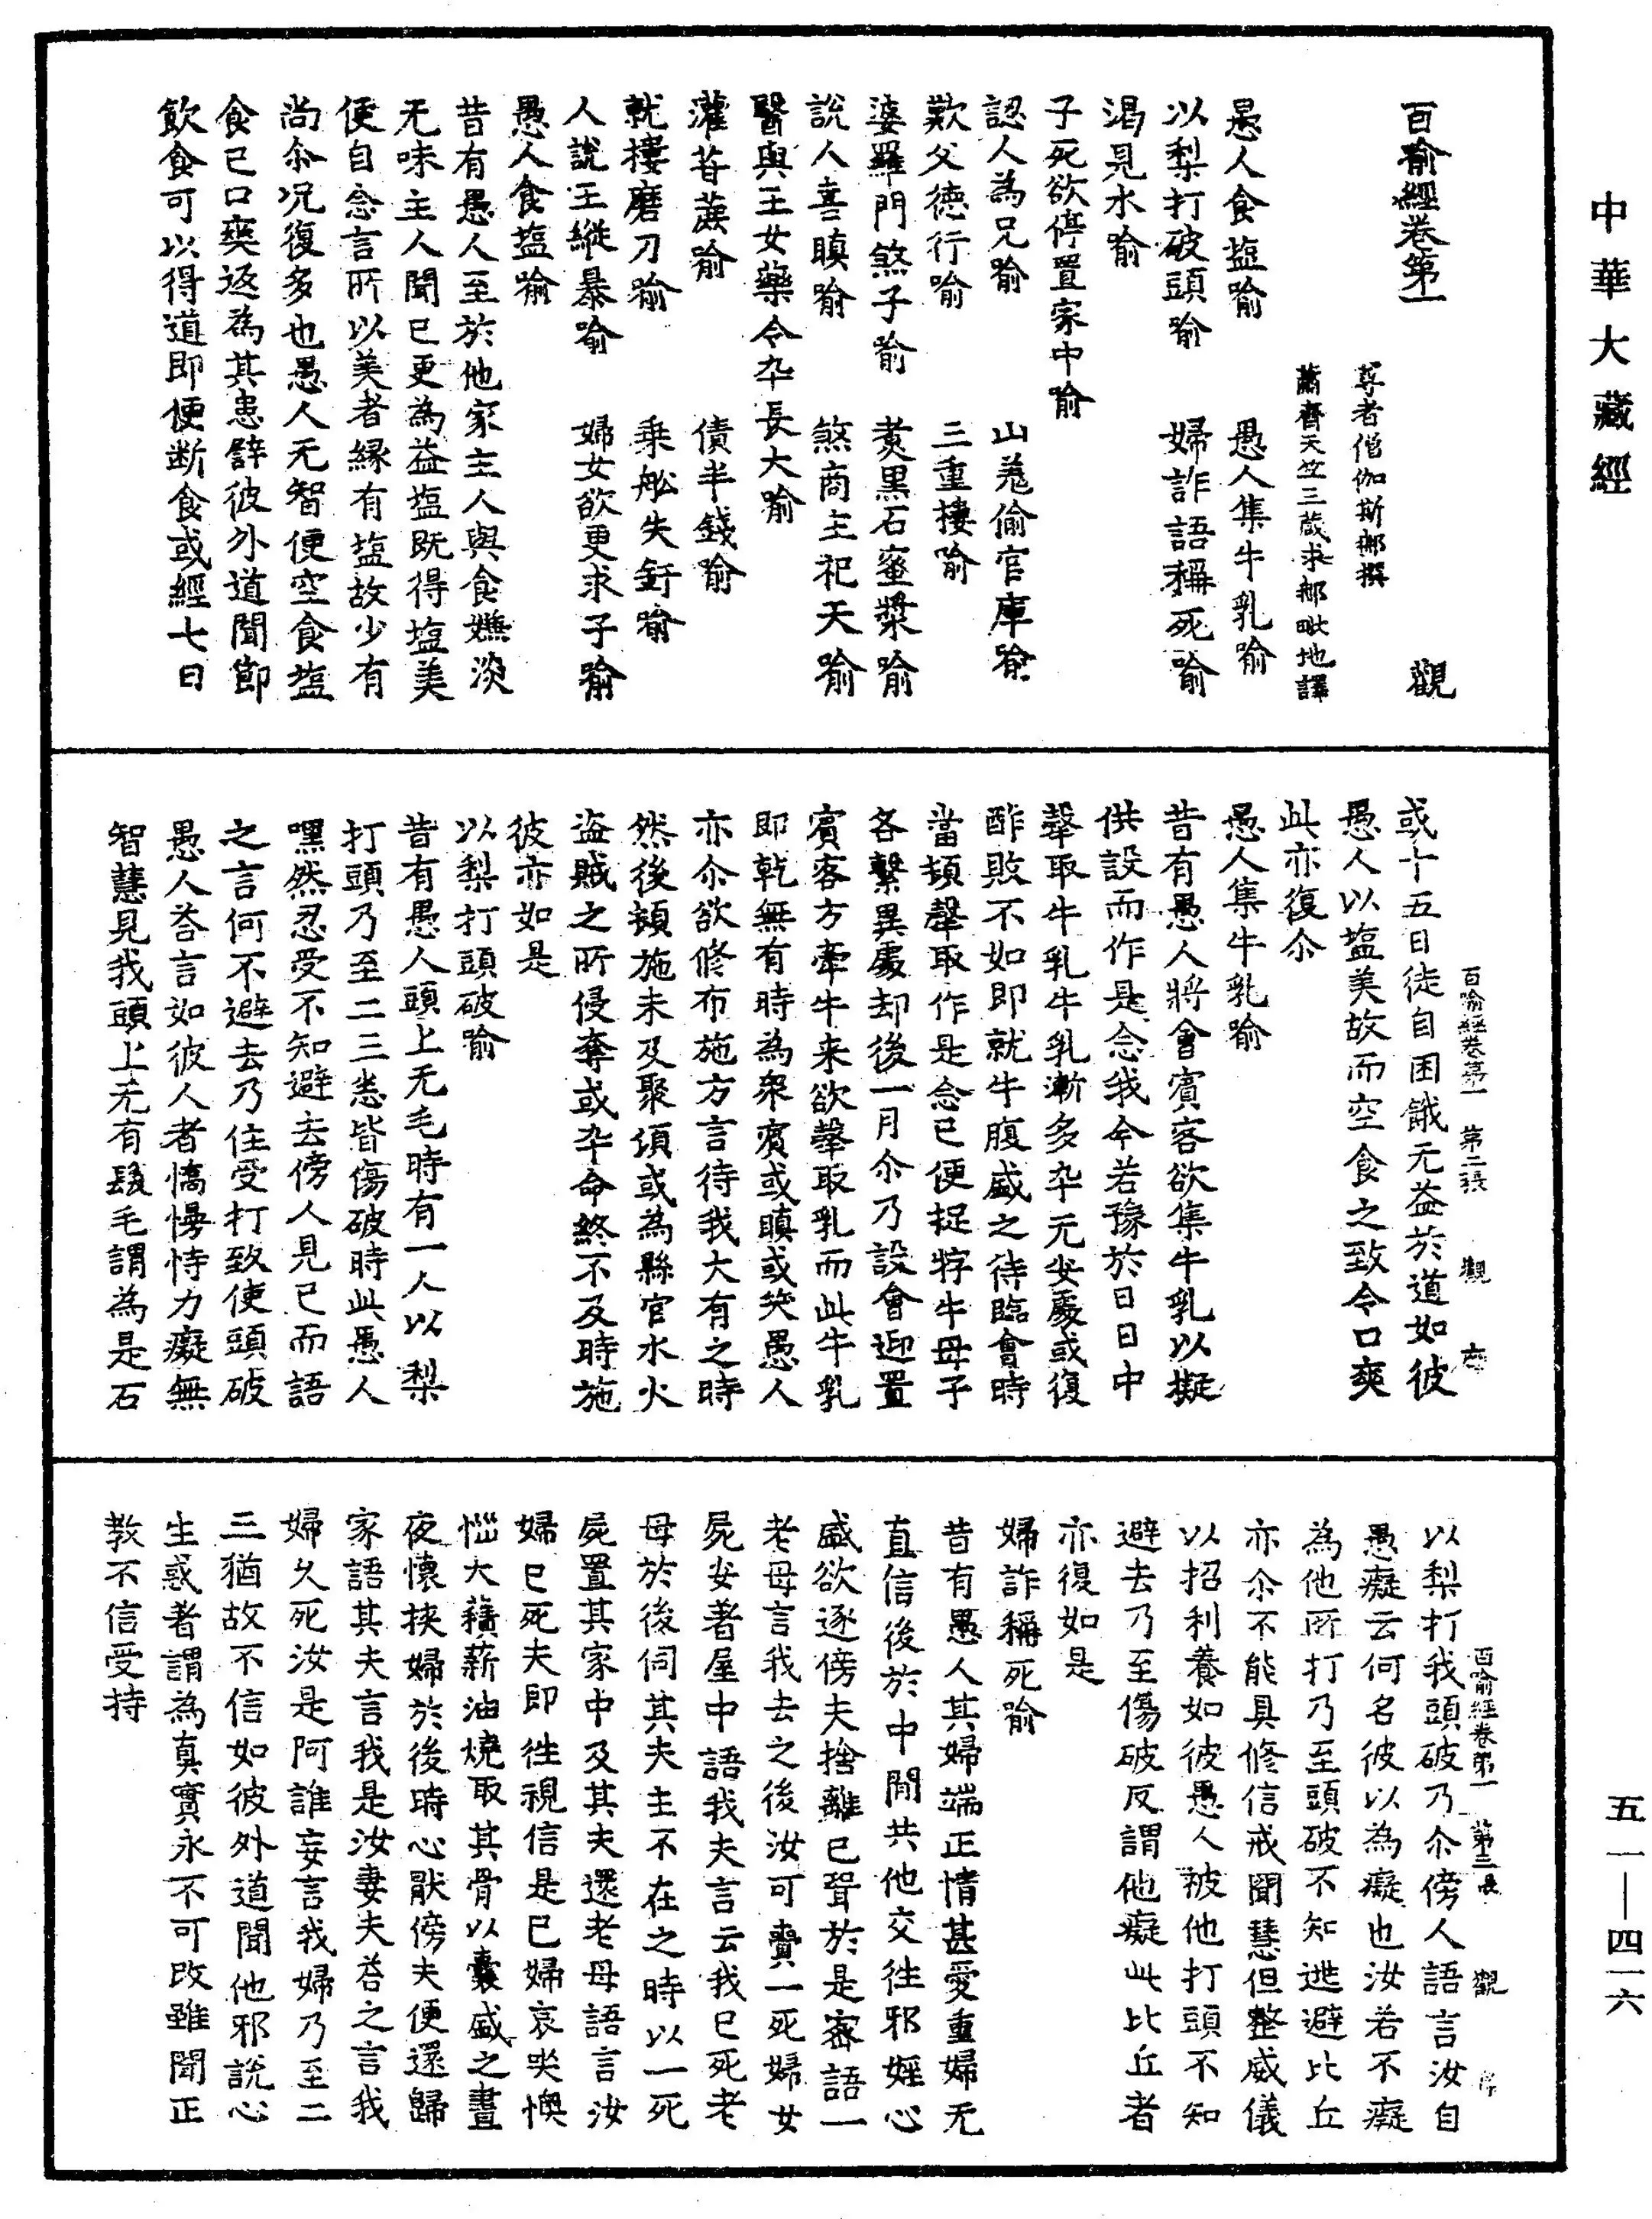 中華大藏經
百喻經卷第一　觀
尊者僧伽斯那撰
蕭齊天竺三藏求那毗地譯
愚人食塩喻　愚人集牛乳喻
以梨打破頭喻　婦詐語稱死喻
渴見水喻
子死欲停置家中喻
認人為兄喻　山羌偷官庫喻
歎父德行喻　三重樓喻
婆羅門煞子喻　煑黑石蜜漿喻
說人喜瞋喻　煞商主祀天喻
醫與王女藥令卒長大喻
灌甘蔗喻　債半錢喻
就樓磨刀喻　乘舩失釪喻
人說王縱暴喻　婦女欲更求子喻
愚人食塩喻
昔有愚人至於他家主人與食嫌淡
无味主人聞已更為益塩既得塩美
便自念言所以美者緣有塩故少有
尚尒況復多也愚人无智便空食塩
食已口爽返為其患譬彼外道聞節
飲食可以得道即便断食或經七日
百喻經卷第一　第二張　觀
或十五日徒自困餓无益於道如彼
愚人以塩美故而空食之致令口爽
此亦復尒
愚人集牛乳喻
昔有愚人將會賓客欲集牛乳以擬
供設而作是念我今若豫於日日中
𤚲取牛乳牛乳漸多卒无安處或復
酢敗不如即就牛腹盛之待臨會時
當頓𤚲取作是念已便捉牸牛母子
各繫異處却後一月尒乃設會迎置
賓客方牽牛来欲𤚲取乳而此牛乳
即乾無有時為衆賓或瞋或笑愚人
亦尒欲修布施方言待我大有之時
然後頓施未及聚頃或為縣官水火
盜賊之所侵奪或卒命終不及時施
彼亦如是
以梨打頭破喻
昔有愚人頭上无毛時有一人以梨
打頭乃至二三悉皆傷破時此愚人
嘿然忍受不知避去傍人見已而語
之言何不避去乃住受打致使頭破
愚人荅言如彼人者憍慢恃力癡無
智慧見我頭上无有髮毛謂為是石
百喻經卷第一　第三張　觀
以梨打我頭破乃尒傍人語言汝自
愚癡云何名彼以為癡也汝若不癡
為他所打乃至頭破不知逃避比丘
亦尒不能具修信戒聞慧但整威儀
以招利養如彼愚人被他打頭不知
避去乃至傷破反謂他癡此比丘者
亦復如是
婦詐稱死喻
昔有愚人其婦端正情甚愛重婦无
直信後於中間共他交往邪婬心
盛欲逐傍夫捨離已聟於是密語一
老母言我去之後汝可賷一死婦女
屍安著屋中語我夫言云我已死老
母於後伺其夫主不在之時以一死
屍置其家中及其夫還老母語言汝
婦已死夫即往視信是已婦哀哭懊
惱大𧂐薪油燒取其骨以囊盛之晝
夜懷挾婦於後時心猒傍夫便還歸
家語其夫言我是汝妻夫荅之言我
婦久死汝是阿誰妄言我婦乃至二
三猶故不信如彼外道聞他邪說心
生惑著謂為真實永不可改雖聞正
教不信受持
五一—四一六